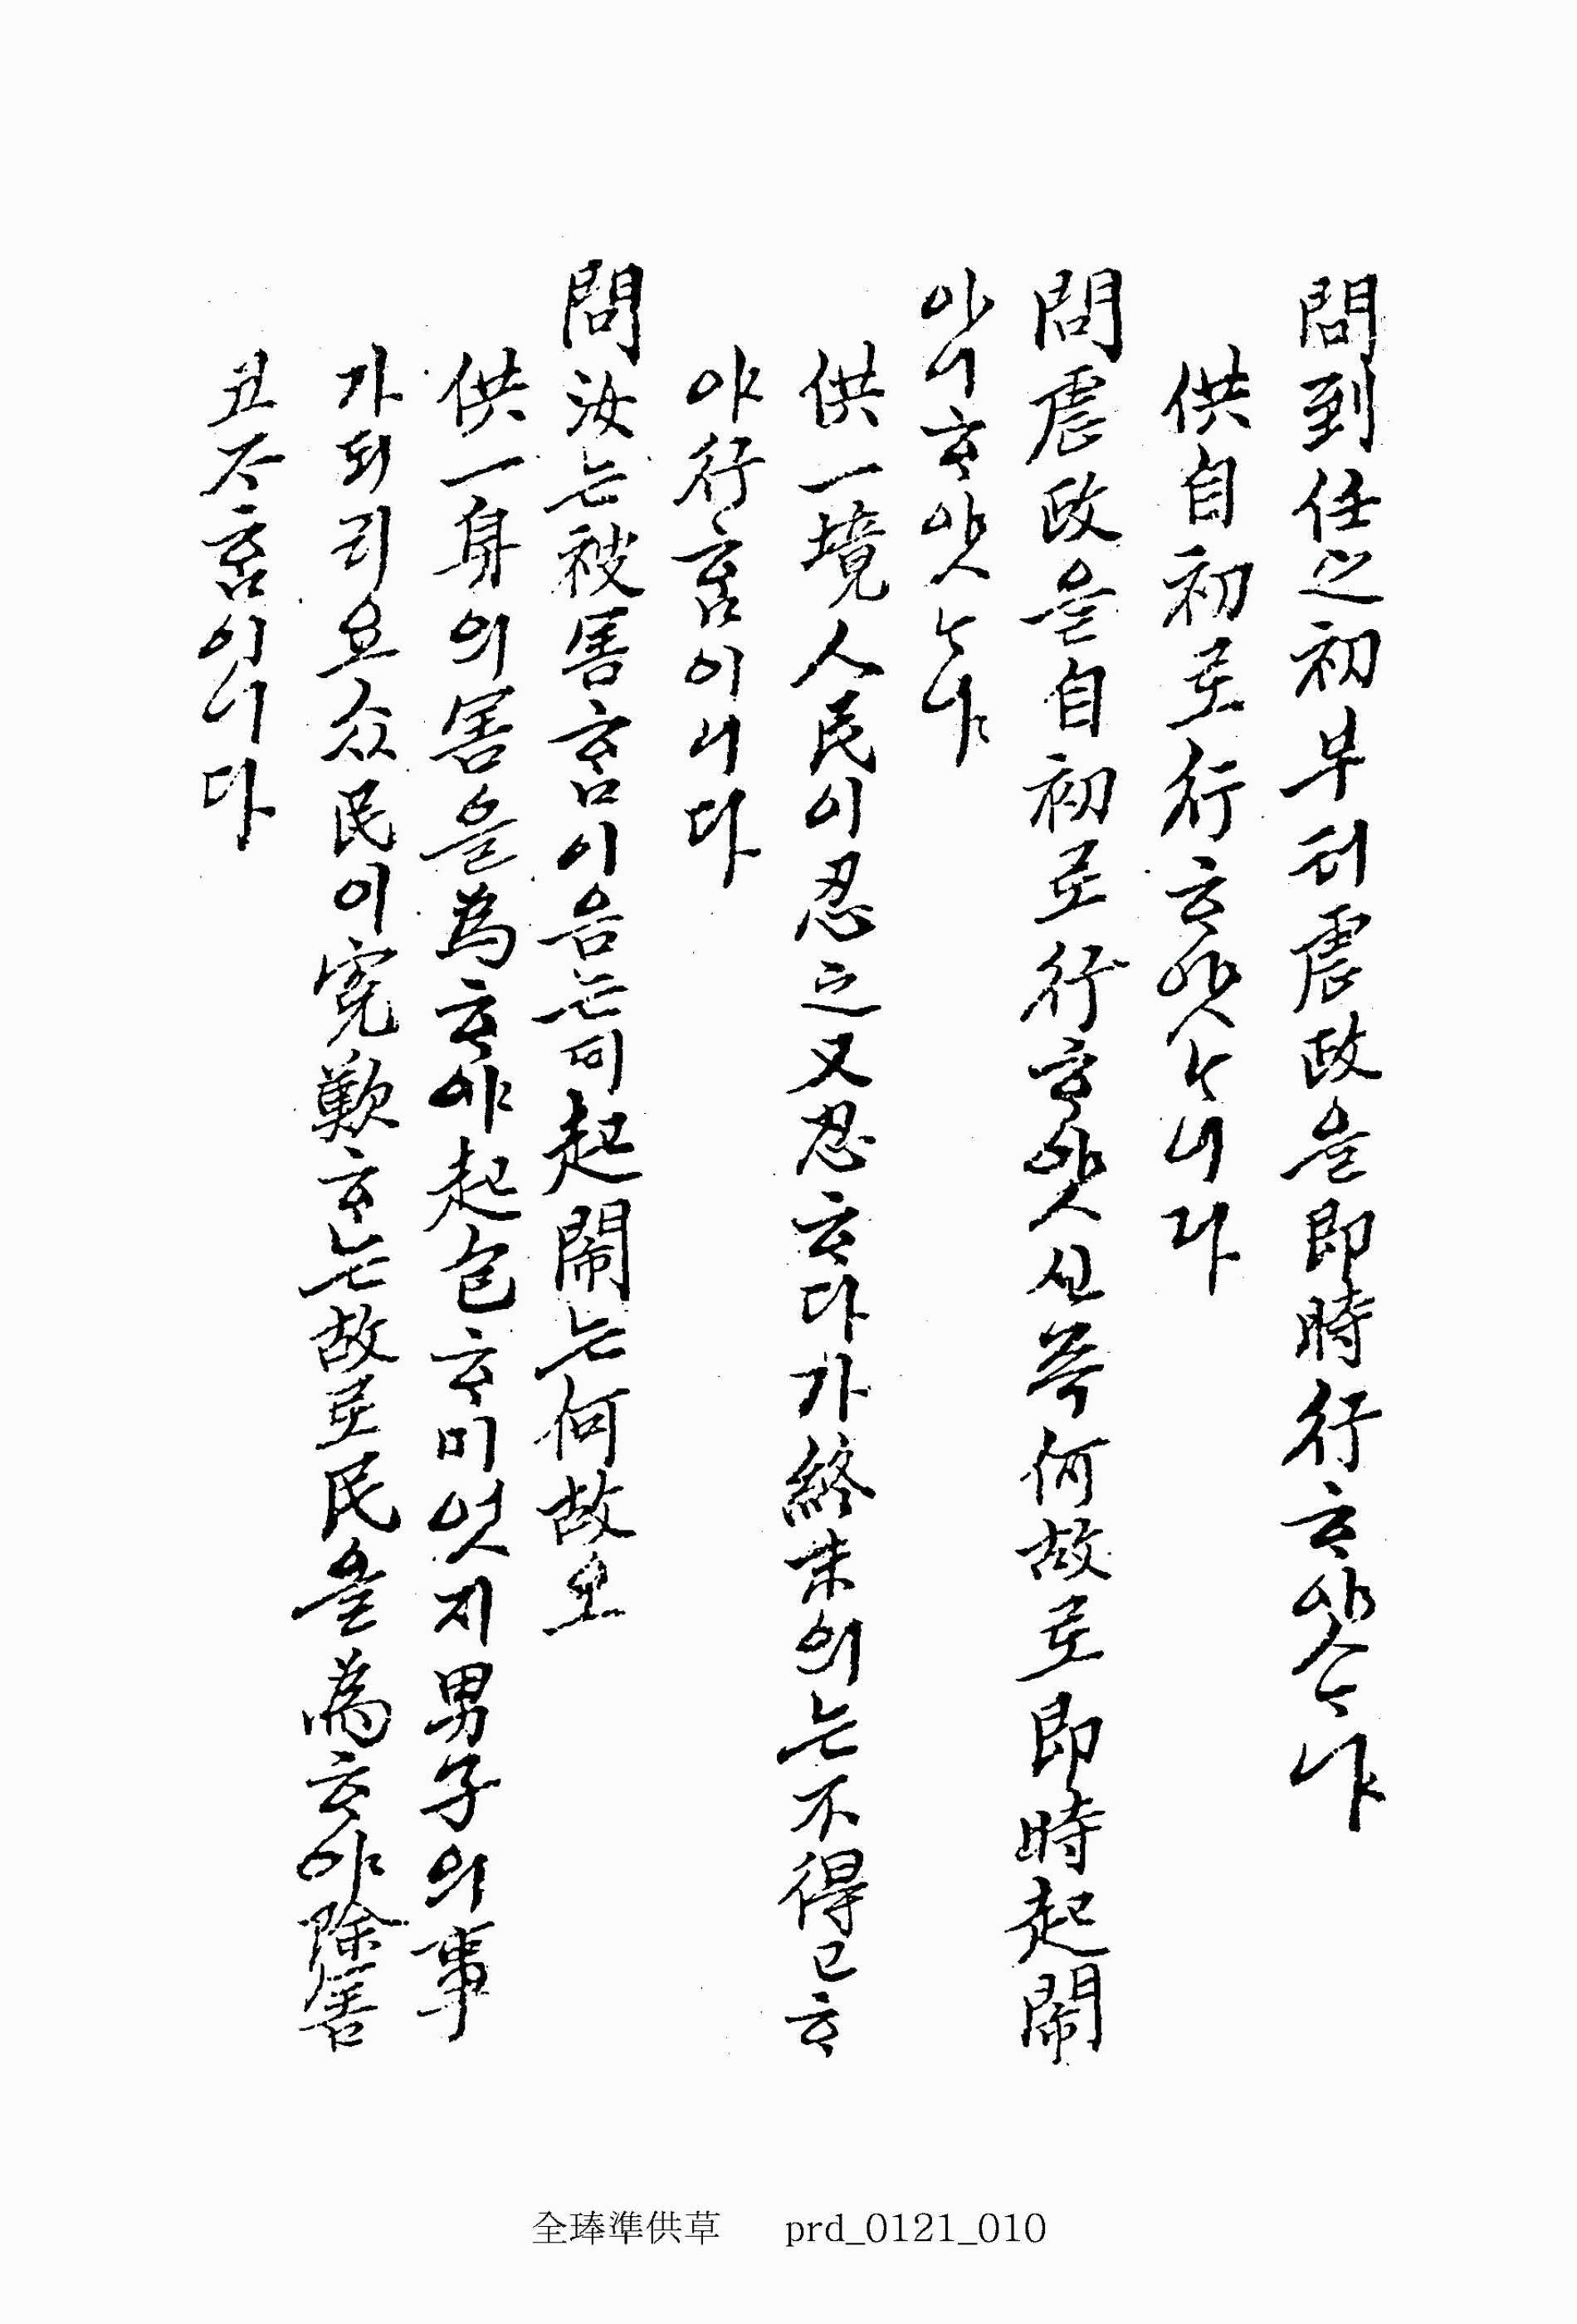 問到任之初부터虐政을即時行ᄒᆞ얏ᄂᆞ냐
供自初로行ᄒᆞ얏ᄂᆞ니다
問虐政을自初로行ᄒᆞ얏신즉何故로即時起鬧
아니ᄒᆞ얏ᄂᆞ냐
供一境人民이忍之又忍ᄒᆞ다가終末의ᄂᆞᆫ不得已ᄒᆞ
야行ᄒᆞᆷ이니다
問汝ᄂᆞᆫ被害ᄒᆞᆷ이음ᄂᆞᆫ데起鬧ᄂᆞᆫ何故오
供一身의害을為ᄒᆞ야起包ᄒᆞ미엇지男子의事
가되리요众民이寃歎ᄒᆞᄂᆞᆫ故로民을為ᄒᆞ야除害
코ᄌᆞᄒᆞᆷ이니다
全琫準供草 prd_0121_010